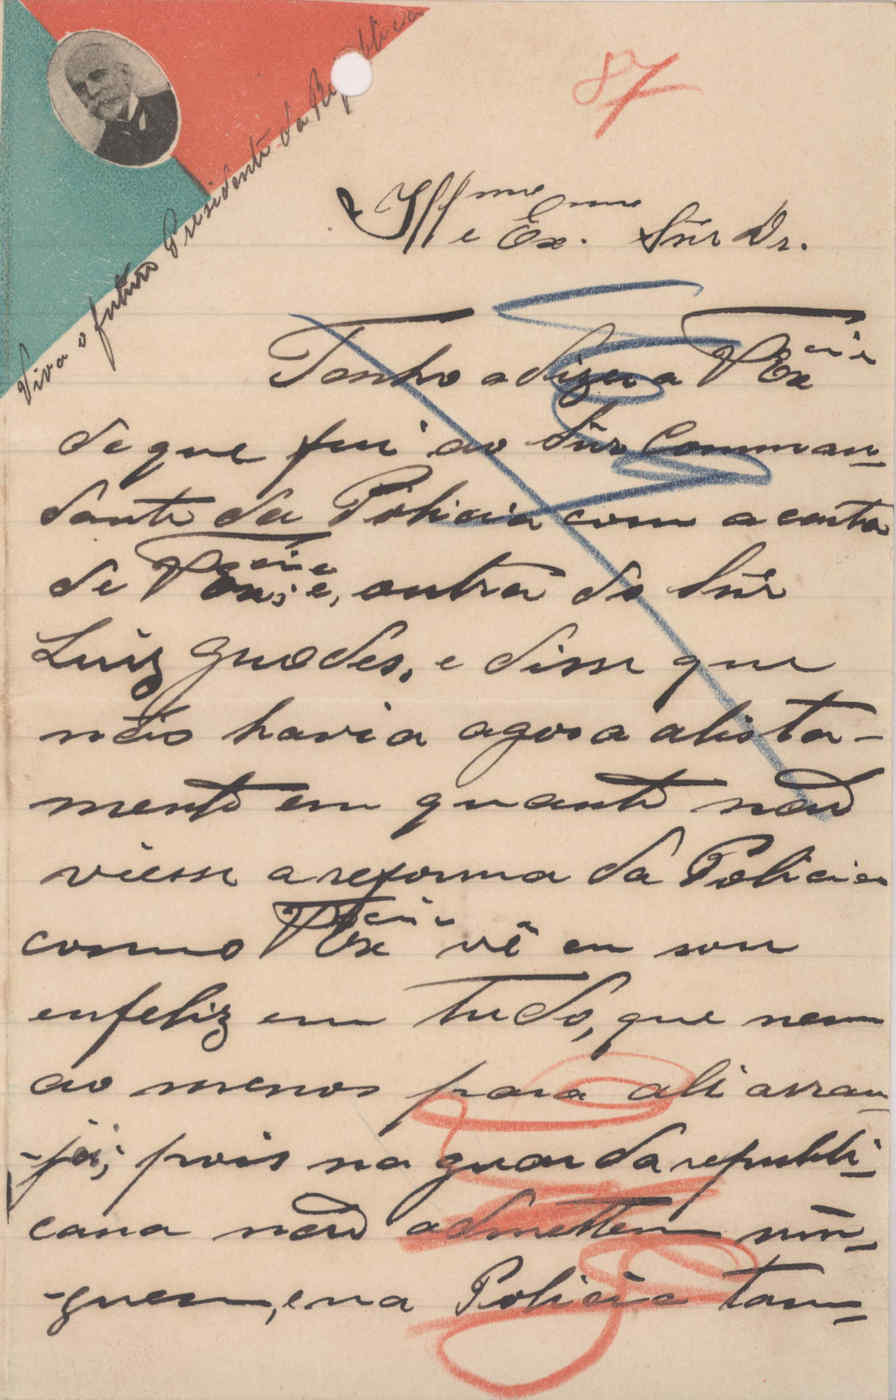 Viva o futuro Presidente da Republica
87
Illmo e Exmo. Snr Dr.
Tenho a dizer a V Excia
de que fui ao Snr Comman-
dante da Policia com a carta
de V Excia; e, outra do Snr
Luiz Guedes, e disse que
não havia agora alista-
mento em quanto não
viesse a reforma da Policia
como V Excia vê eu sou
enfeliz em tudo, que nem
ao menos para ali arran-
-jei; pois na guarda republi-
cana não admettem nin-
-guem, e na Policia tam-